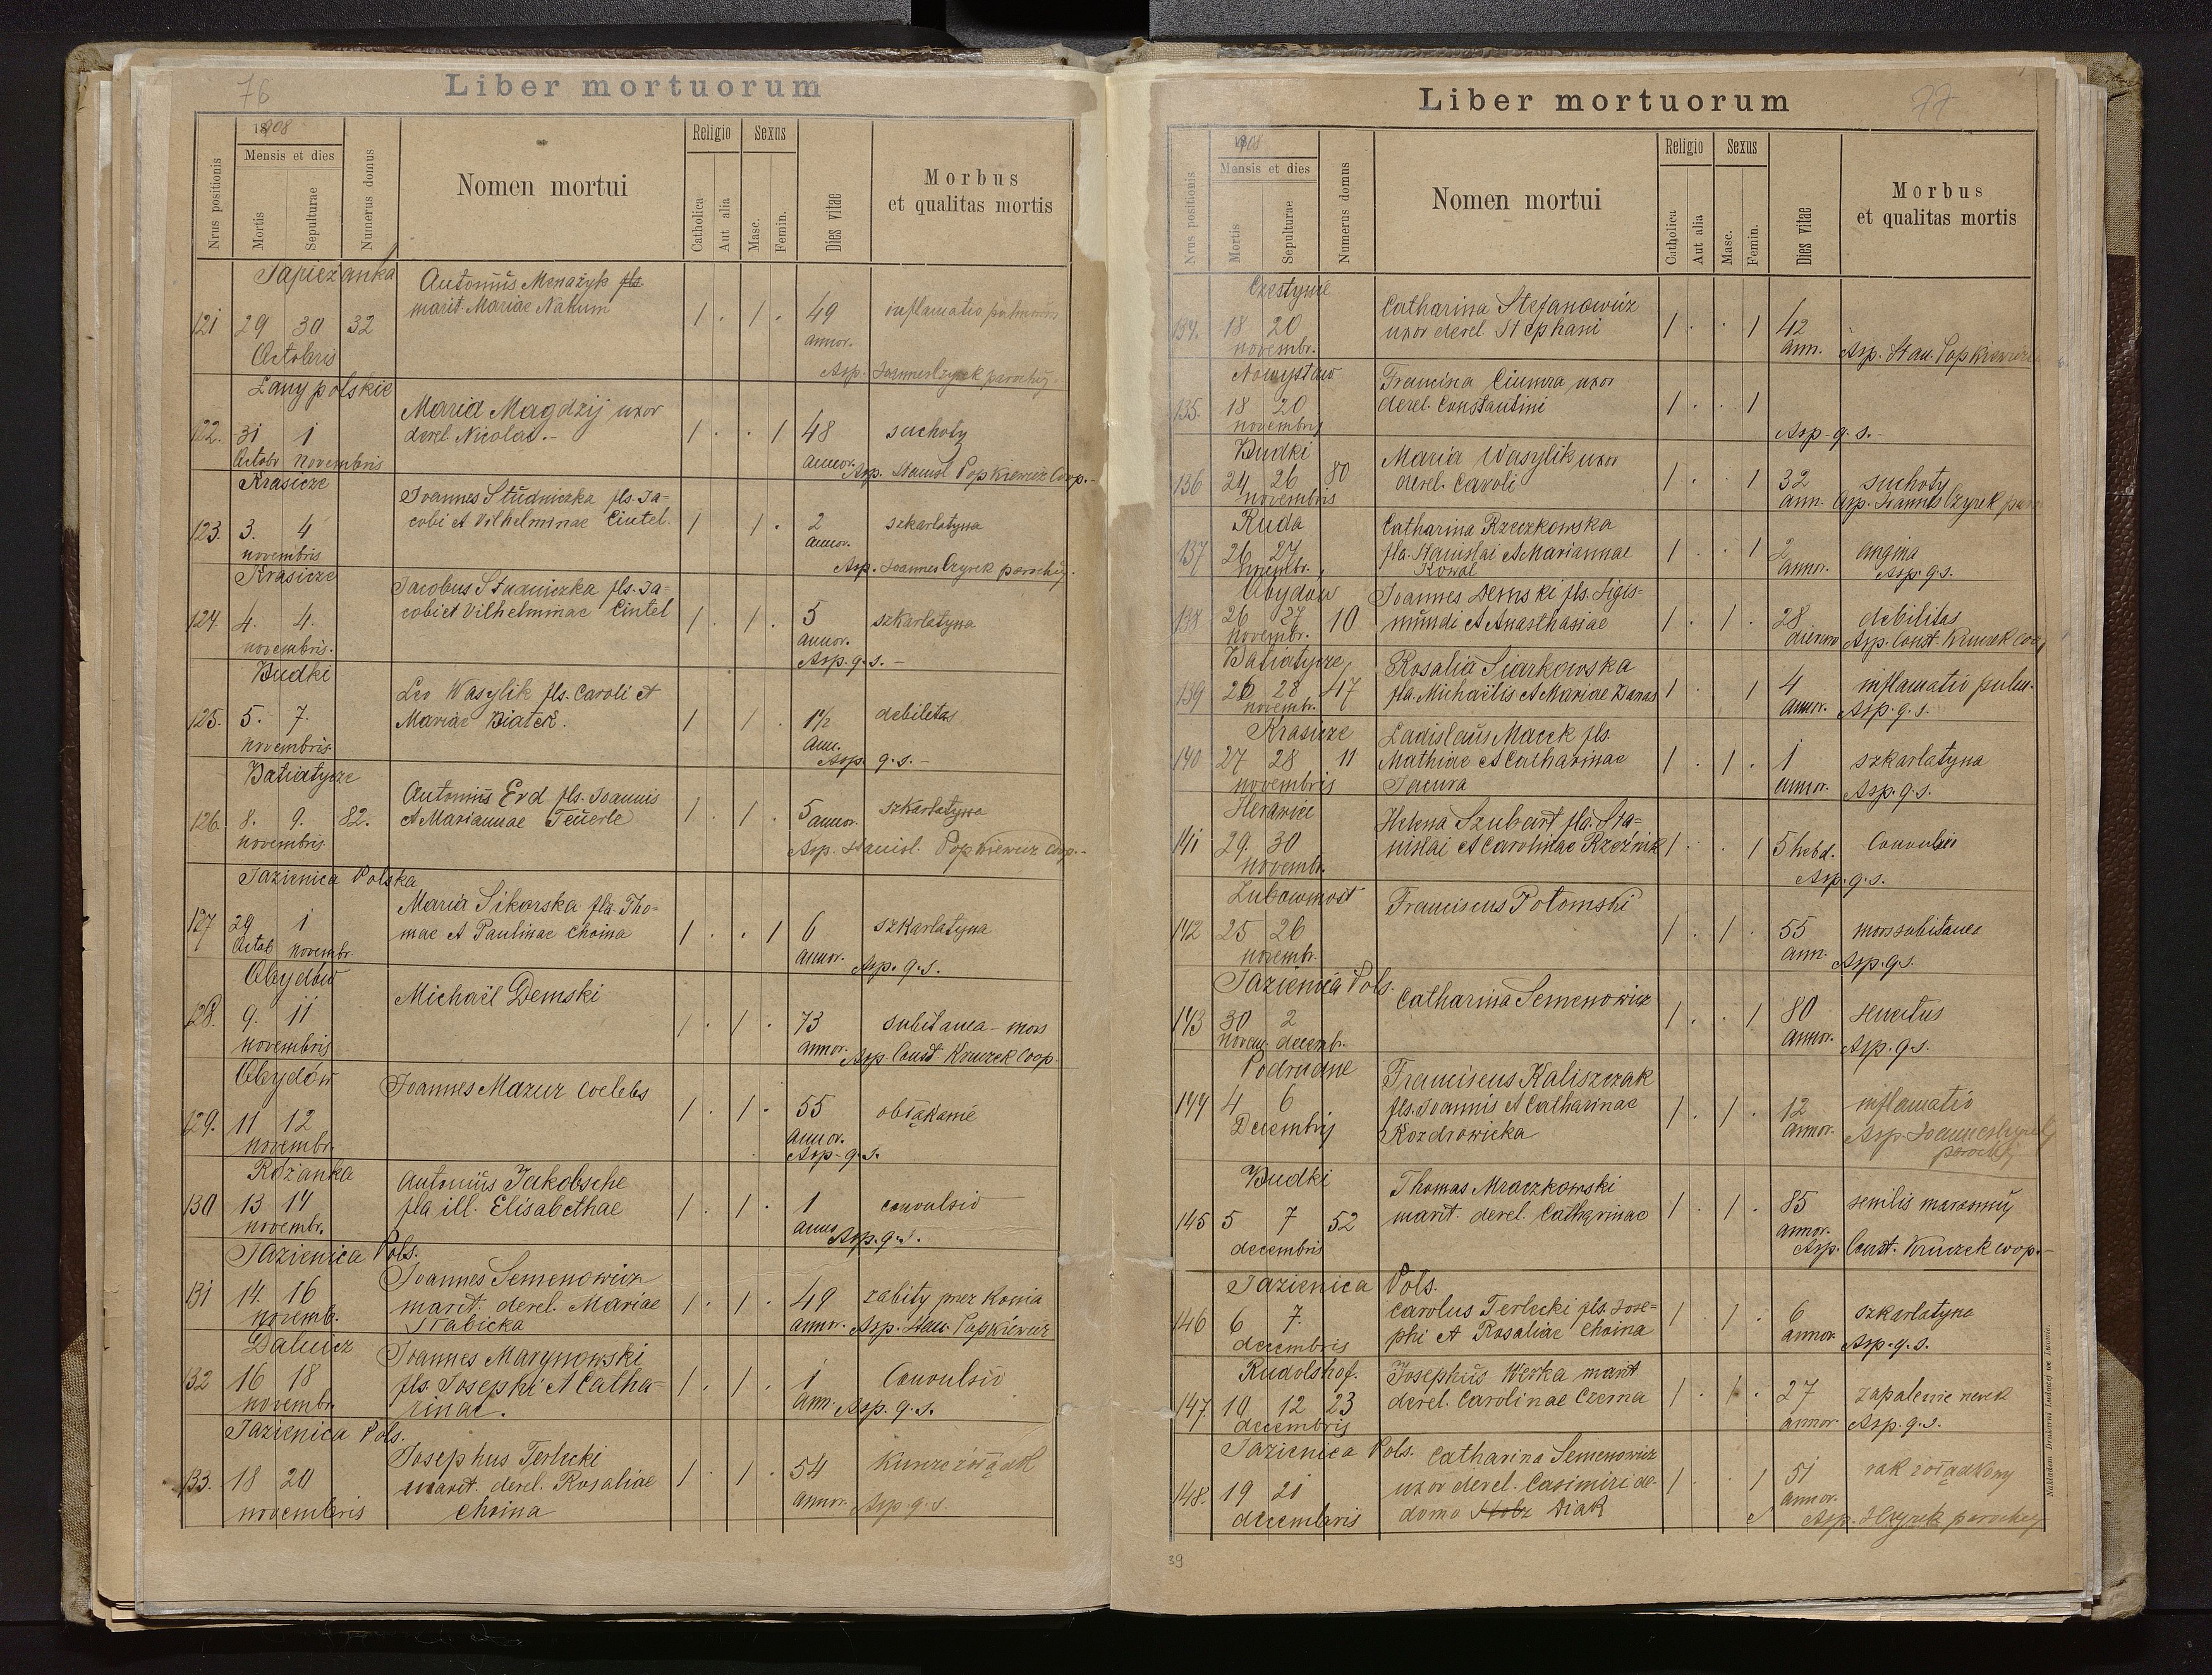 76
Liber mortuorum
1908
Religio
Sexus
Mensis et dies
Nrus positionis
Mortis
Sepulturae
Numerus domus
Nomen mortui
Catholica
Aut alia
Masc.
Femin.
Dies vitae
Morbus
et qualitas mortis
Sapiezanka
Antonius Menażyk fls.
marit. Mariae Nahum
121 29 30 32 1 . 1 . 49 inflamatio pulmonis
Octobris annor.
Asp. Joannes Czyrek parochus
Łany polskie
Maria Magdzij uxor
derel. Nicolai.-
122. 31 1 1 . . 1 48 suchoty
Octobr novembris annor. Asp. Stanisl Popkiewicz Coop.-
Krasicze
Joannes Studniczka fls. Ja=
cobi et Vilhelminae Cintel.
123. 3. 4 1 1 . 2 szkarlatyna
novembris annor.
Asp. Joannes Czyrek parochus.
Krasicze
Jacobus Studniczka fls. Ja=
cobi et Vilhelminae Cintel
124. 4. 4. 1 . 1 . 5 szkarlatyna
novembris. annor.
Asp. q. s. -
Budki
Leo Wasylik fls. Caroli et
Mariae Białek.
125. 5. 7. 1 1 . 1½ debilitas
novembris. ann.
Asp. q. s. -
Batiatycze
Antonius Erd fls. Joannis
et Mariannae Teuerle
126. 8. 9. 82. 1 . 1 . 5 annor. szkarlatyna
novembris
Asp. Stanisl. Popkiewicz Coop.-
Jazienica Polska
Maria Sikorska fla. Tho=
mae et Paulinae Choina
127 29 1 1 . . 1 6 szkarlatyna
Octob novembr. annor. Asp. q. s.
Obydów
Michaël Demski
128. 9. 11 1 . 1 . 73 subitanea - mors
novembris annor. Asp. Const Kruczek Coop.
Obydów
Joannes Mazur coelebs
129. 11 12 1 . 1 . 55 obłąkanie
novembr. annor.
Asp. q. s.
Różanka
Antonius Jakobsche
fla ill. Elisabethae
130 13 14 1 . 1 . 1 convulsio
novembr. anno Asp. q. s.
Jazienica Pols.
Joannes Semenowicz
marit. derel. Mariae
131 14. 16 1 . 1 . 49 zabity przez konia
novemb. annor. Asp. Stan. Popkiewicz
Joannes Marynowski
fls. Josephi et Catha=
rinae.
132 16 18 1 . 1 . 1 Convulsio
novembr. ann. Asp. q. s.
Jazienica Pols.
Josephus Terlecki
marit. derel. Rosaliae
Choina
133. 18 20 1 . 1 . 54
novembris annor. Asp. q. s.
77
Liber mortuorum
1908
Religio
Sexus
Mensis et dies
Nrus positionis
Mortis
Sepulturae
Numerus domus
Nomen mortui
Catholica
Aut alia
Masc.
Femin.
Dies vitae
Morbus
et qualitas mortis
Catharina Stefanowicz
uxor derel. Stephani
134. 18 20 1 . . 1 42
novembr. ann. Asp. Stan. Popkiewicz
Nowystaw
Francina Ciumra uxor
derel. Constantini
135. 18 20 1 . . 1
novembris
Asp. q. s.-
Budki
Maria Wasylik uxor
derel. Caroli
136 24 26 80 1 . . 1 32 suchoty
novembris ann. Asp. Joannes Czyrek
Ruda
Catharina Rzeczkowska
fla. Stanislai et Mariannae
Kowal
137 26 27 1 . . 1 2 angina
novembr. annor. Asp. q. s.
Obydów
Joannes Demski fls. Sigis=
mundi et Anasthasiae
138 26 27 10 1 . 1 . 28 debilitas
novembr. dierum Asp. Const. Kruczek coop
Batiatycze
Rosalia Siarkowska
fla. Michaëlis et Mariae Banas
139 26 28 47 1 . 1 4 inflamatio pulm.
novembr. annor. Asp. q. s.
Krasicze
Ladislaus Macek fls.
Mathiae et Catharinae
Jacura
140 27 28 11 1 . 1 . 1 szkarlatyna
novembris annor. Asp. q. s.
Helena Szubart fla. Sta=
nislai et Carolinae Rzeźnik
141 29. 30 1 . . 1 5 hebd. Convulsio
novembr. Asp. q. s.
Lubowmost
Franciscus Potomski
142 25 26 1 . 1 . 55 mors subitanea
novembr. ann. Asp. q. s.
Jazienica Pols.
Catharina Semenowicz
143 30 2 1 . . 1 80 senectus
Novem. decembr. annor. Asp. q. s.
Podrudne
Franciscus Kaliszczak
fls. Joannis et Catharinae
Kozdrowicka
144 4 6 1 . 1 . 12 inflamatio
Decembris annor. Asp. Joannes Czyrek
parochus
Budki
Thomas Mraczkowski
marit. derel. Catharinae
145 5 7 52 1 . 1 . 85 senilis marasmus
decembris annor.
Asp. Const. Kruczek coop.-
Jazienica Pols.
Carolus Terlecki fls. Jose=
phi et Rosaliae Choina
146 6 7. 1 . 1 . 6 szkarlatyna
decembris annor Asp. q. s.
Rudolshof.
Josephus Werka marit
derel. Carolinae Czerna
147. 10 12 23 1 . 1 . 27 zapalenie nerek
decembris annor Asp. q. s.
Jazienica Pols.
Catharina Semenowicz
uxor derel. Casimiri de
domo Diak
148. 19 21 1 . . 1 51 rak żołądkowy
decembris annor.
Asp. JCzyrek parochus
39
Nakładem Drukarni Ludowej we Lwowie.